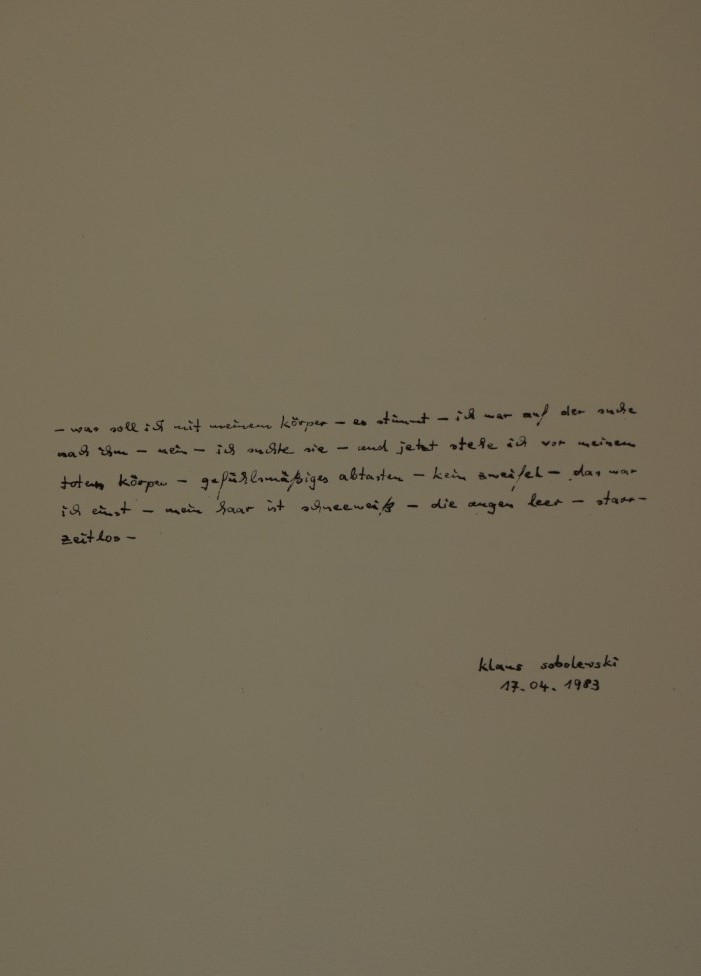 – was soll ich mit meinem körper – es stimmt – ich war auf der suche
nach ihm – nein – ich suchte sie – und jetzt stehe ich vor meinem
toten körper – gefühlsmäßiges abtasten – kein zweifel – das war
ich einst – mein haar ist schneeweiß – die augen leer – starr –
zeitlos –
klaus sobolewski
17.04.1983